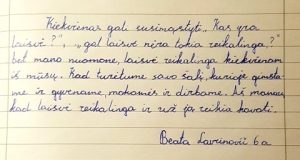 Kiekvienas gali susimąstyt „Kas yra
laisvė?", „gal laisvė nėra tokia reikalinga?"
bet mano nuomone, laisvė reikalinga kiekvienam
iš mūsų. Kad turėtume savo šalį, kurioje gimsta-
me ir gyvename, mokomės ir dirbame. Aš manau,
kad laisvė reikalinga ir už ją reikia kovoti.
Beata 6a